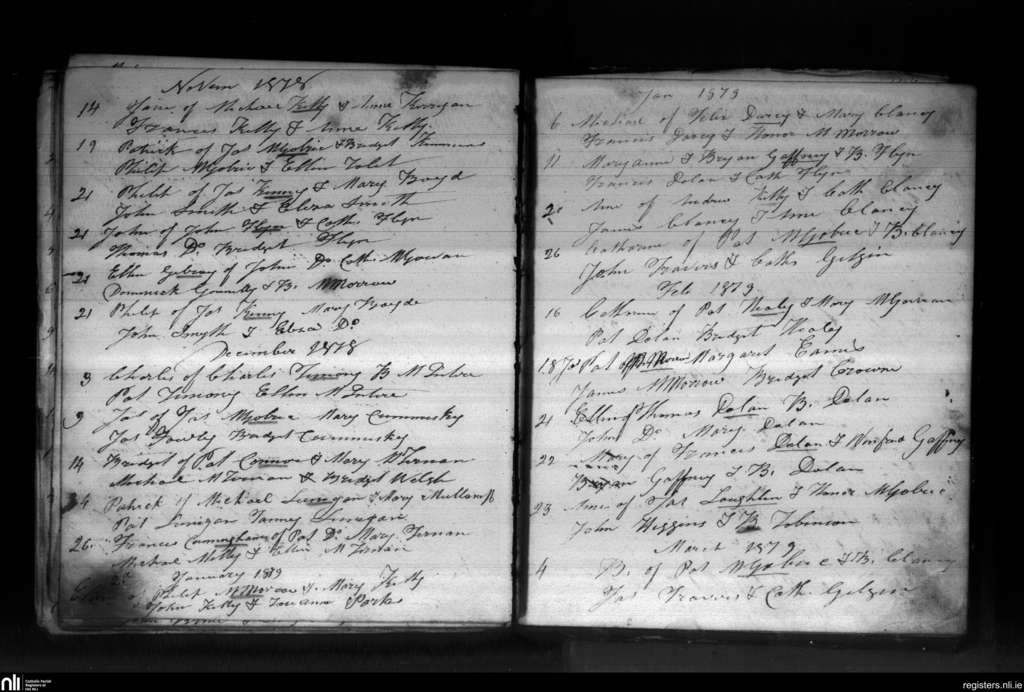 Novem 1878
14 Jane of Michael Kelly & Anne Kerrigan
Frances Kelly & Anne Kelly
19 Patrick of Jas McGobrie & Bridget
Philip McGobrie & Ellen
21 Philip of Jas Kenny & Mary Boyd
John Smith & Eliza Smith
21 John of John Flyn & Cath. Flyn
Thomas Do Bridget Flyn
21 Ellen of John Do Cath. McGowan
Dominick & B. McMorrow
21 Philip of Jas Kenny Mary Boyde
John Smyth & Eliza Do
December 1878
3 Charles of Charles Timony B. McEntire
Pat Timony Ellen McEntire
9 Jas of Jas McGobrie Mary Cummuskey
Jas Bridget Cummuskey
14 Bridget of Pat Connor & Mary McTernan
Michael McTernan & Bridget Welsh
Patrick of Michael Linegan & Mary
Pat Linegan Linegan
26. Frances Cunningham of Pat Do Mary Ternan
Michael & Ellen McTernan
January 1879
of Philip McMorrow & Mary Kelly
John Kelly &
Jan 1879
6 Michael of Felix Darcy & Mary Clancy
Francis Darcy & Honor McMorrow
11 Maryanne of Bryan Gaffney & B. Flyn
Francis Dolan & Cath Flyn
2 Anne of Andrew Kelly & Cath Clancy
James Clancy & Anne Clancy
26 Catherine of Pat McGobrie & B. Clancy
John Travers & Cath Gilgin
Feb 1879
16 Cathrine of Pat Healy & Mary McGowan
Pat Dolan Bridget Healy
18 Pat McMorrow Margaret
James McMorrow Bridget Crowne
21 Ellen of Thomas Dolan B. Dolan
John Do Mary Dolan
22 Mary of Frances Dolan & Winifred Gaffney
Bryan Gaffney & B. Dolan
23 Anne of Jas Loughlin & Honor McGobrie
John Higgins & B Johnson
March 1879
4 B. of Pat McGobrie & B. Clancy
Jas Travers & Cath. Gilgin
nli
Catholic Parish
Registers at
the NLI
registers.nli.ie